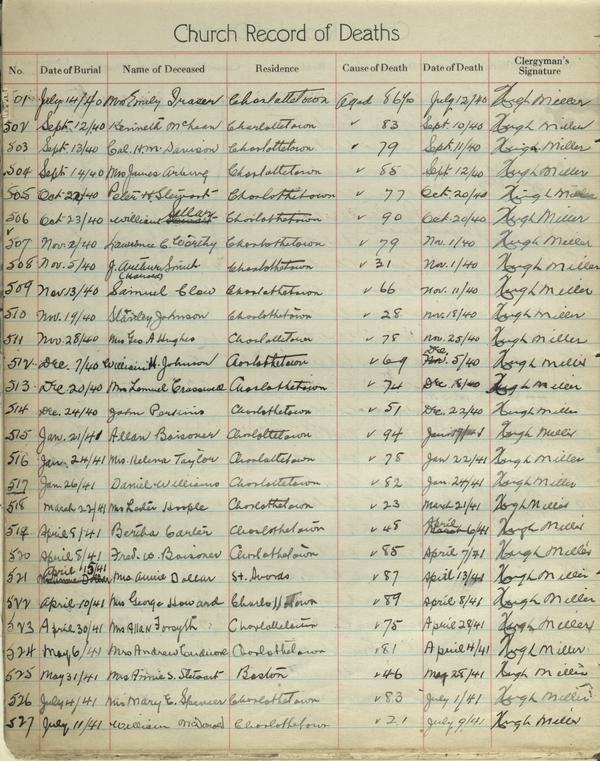 Church Record of Deaths
No. Date of Burial Name of Deceased Residence Cause of Death Date of Death Clergyman's Signature
501 July 14/40 Mrs Emily Fraser Charlottetown Aged 86 yrs July 12/40 Hugh Miller
502 Sept. 12/40 Kenneth McLean Charlottetown " 83 Sept. 10/40 Hugh Miller
503 Sept. 13/40 Col. H.M. Davison Charlottetown " 79 Sept. 11/40 Hugh Miller
504 Sept. 14/40 Mrs James Charlottetown " 55 Sept. 12/40 Hugh Miller
505 Oct. 22/40 Peter Charlottetown " 77 Oct. 20/40 Hugh Miller
506 Oct 23/40 William Charlottetown " 90 Oct. 20/40 Hugh Miller
507 Nov. 2/40 Lawrence C. Worthy Charlottetown " 79 Nov. 1/40 Hugh Miller
508 Nov. 5/40 J. Arthur Smith Charlottetown " 31 Nov. 1/40 Hugh Miller
509 Nov. 13/40 Samuel Clow Charlottetown " 66 Nov. 11/40 Hugh Miller
510 Nov. 19/40 Stanley Johnson Charlottetown " 28 Nov. 18/40 Hugh Miller
511 Nov. 28/40 Mrs Geo. A Hughes Charlottetown " 78 Nov. 25/40 Hugh Miller
512 Dec. 7/40 William H. Johnson Charlottetown " 69 Dec. 5/40 Hugh Miller
513 Dec 20/40 Mrs Lemuel Charlottetown " 74 Dec. 18/40 Hugh Miller
514 Dec. 24/40 John Perkins Charlottetown " 51 Dec. 22/40 Hugh Miller
515 Jan. 21/41 Allan Charlottetown " 94 Jan 41 Hugh Miller
516 Jan. 24/41 Mrs. Helena Taylor Charlottetown " 78 Jan 22/41 Hugh Miller
517 Jan. 26/41 Daniel Williams Charlottetown " 82 Jan. 24/41 Hugh Miller
518 March 22/41 Mrs Lester Hoople Charlottetown " 23 March 21/41 Hugh Miller
519 April 8/41 Bertha Carter Charlottetown " 48 April 6/41 Hugh Miller
520 April 8/41 Fred. W. Charlottetown " 85 April 7/41 Hugh Miller
521 April 15/41 Mrs Annie Dollar St. " 87 April 13/41 Hugh Miller
522 April 10/41 Mrs George Howard Charlottetown " 89 April 8/41 Hugh Miller
523 April 30/41 Mrs Allan Forsyth Charlottetown " 75 April 28/41 Hugh Miller
524 May 6/41 Mrs Andrew Charlottetown " 81 April 4/41 Hugh Miller
525 May 31/41 Mrs Annie S. Stewart Boston " 46 May 28/41 Hugh Miller
526 July 4/41 Mrs Mary E. Spencer Charlottetown " 83 July 1/41 Hugh Miller
527 July 11/41 William McDonald Charlottetown " 21 July 9/41 Hugh Miller